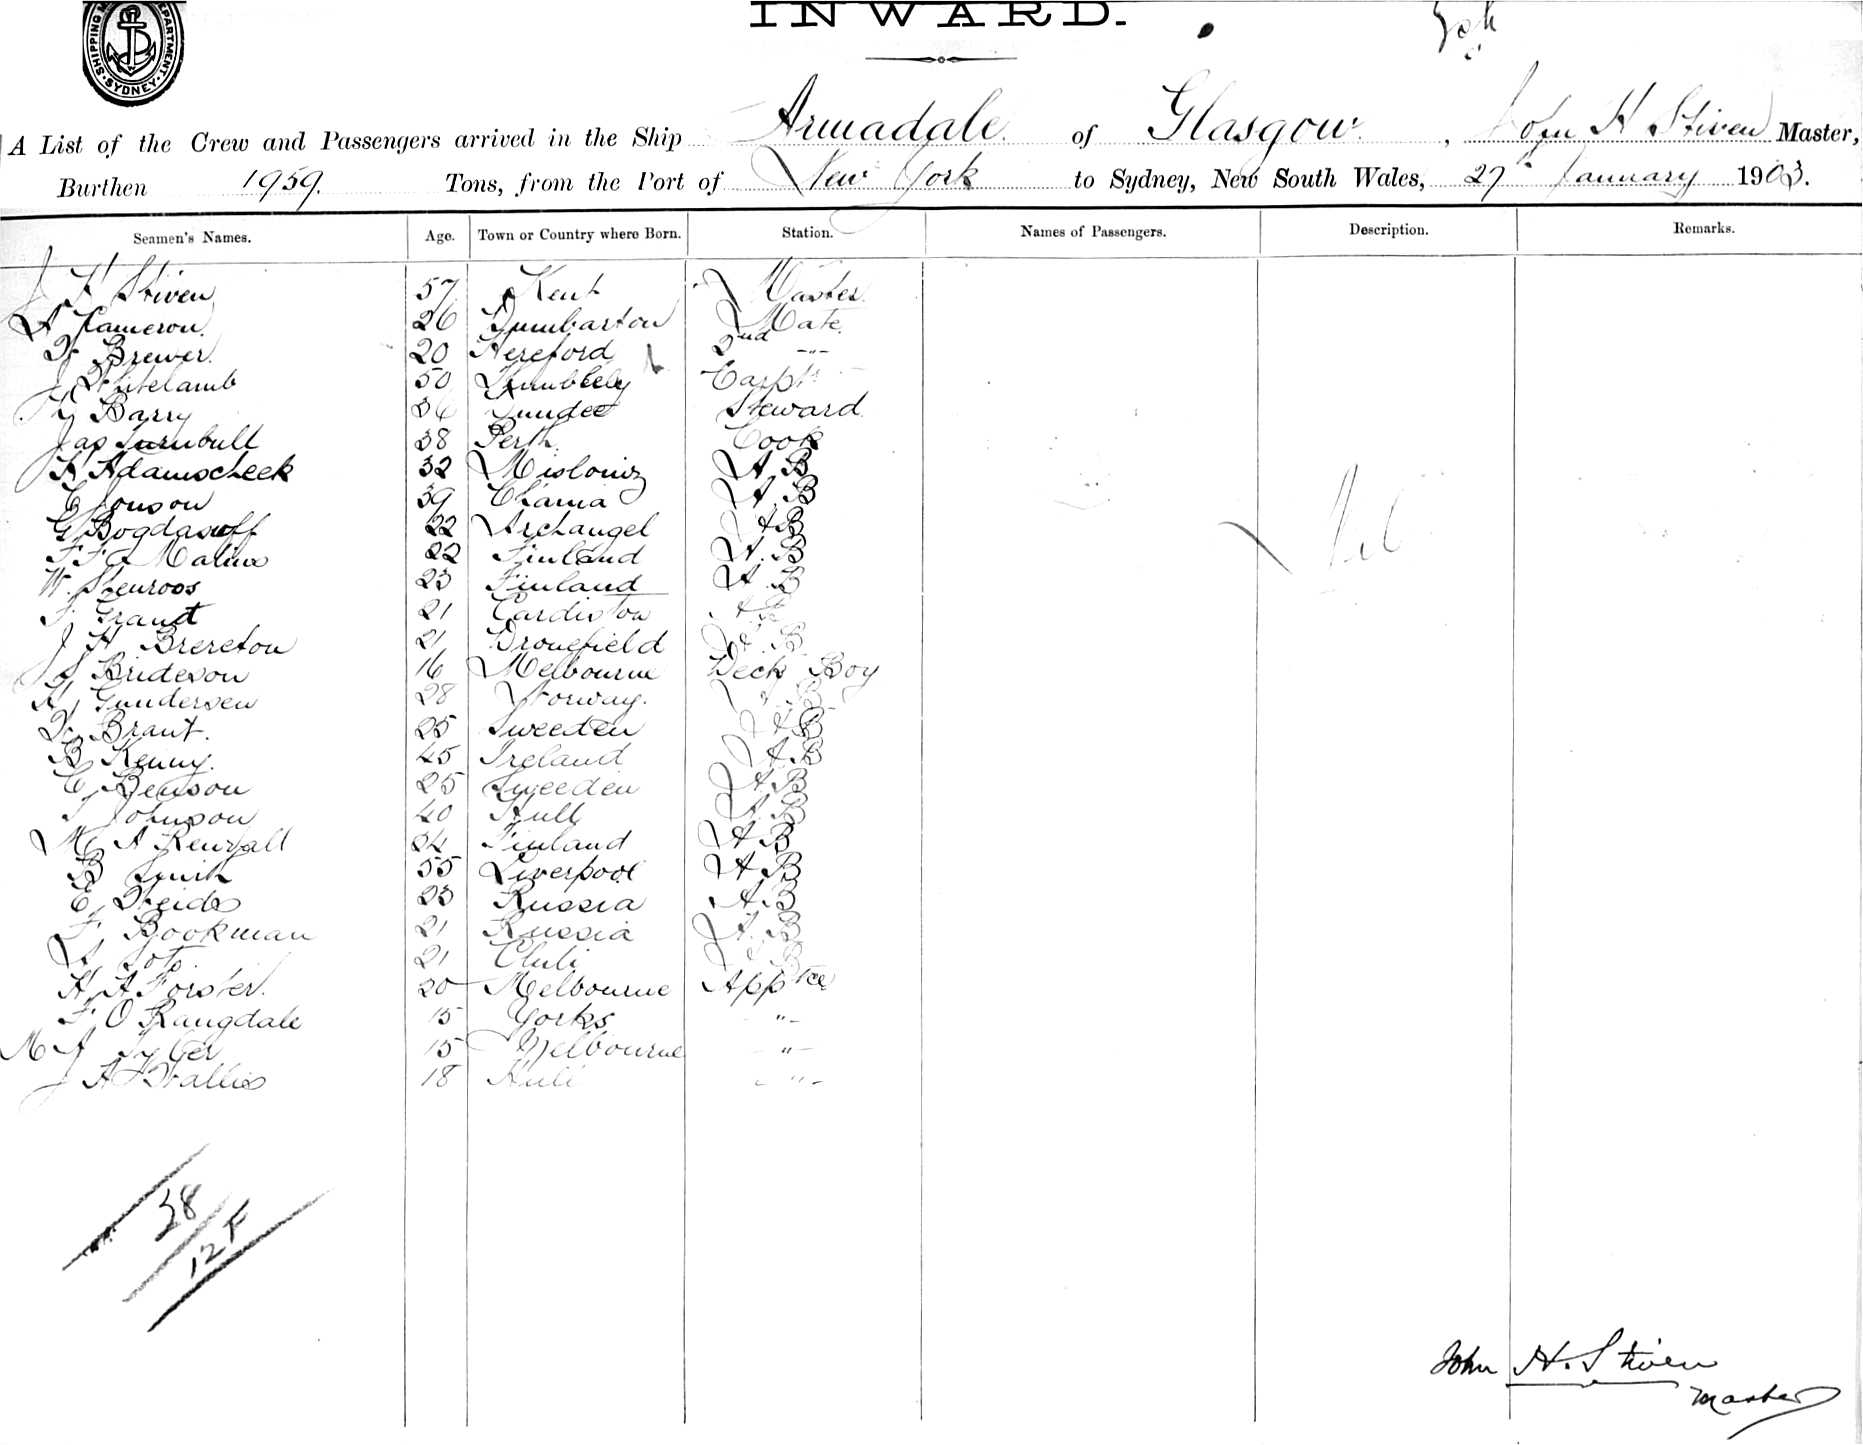 INWARD.
SHIPPING DEPARTMENT. SYDNEY
A List of the Crew and Passengers arrived in the Ship Armadale of Glasgow, John H Stiven Master,
Burthen 1959. Tons, from the Port of New York to Sydney, New South Wales, 27 January 1903.
Seamen's Names. Age. Town or Country where Born. Station. Names of Passengers. Description. Remarks.
J H Stiven 57 Kent Master
A Cameron. 26 Dumbarton Mate.
W Brewer. 20 Hereford 2nd -"-
J Whitelamb 50 Carptr
Hy Barry 36 Dundee Steward.
Jas Turnbull 38 Perth Cook
K Adamscheek 32 Mislowiz A B
E Jonson 39 A B
G Bogdanoff 22 Archangel A B
22 Finland A. B
W. Stenroos 23 Finland A B
F Grant 21 A B
J H Brereton 21 Dronefield A. B
J Brideson 16 Melbourne Deck Boy
H Gundersen 28 Norway. A B
W Brant. 25 Sweeden A B
B Kenny. 45 Ireland A B
E Benson 25 Sweeden A B
F Johnson 40 Hull A B
M A 34 Finland A B
B Smith 55 Liverpool A B
E 23 Russia A B
F Bookman 21 Russia A. B
A Soto. 21 Chili A B
H A Forster. 20 Melbourne Apptce
F O Rangdale 15 Yorks -"-
M J Tyler 15 Melbourne -"-
J A Wallis 18 Hull -"-
Nil
28
12 F
John H. Stiven
Master